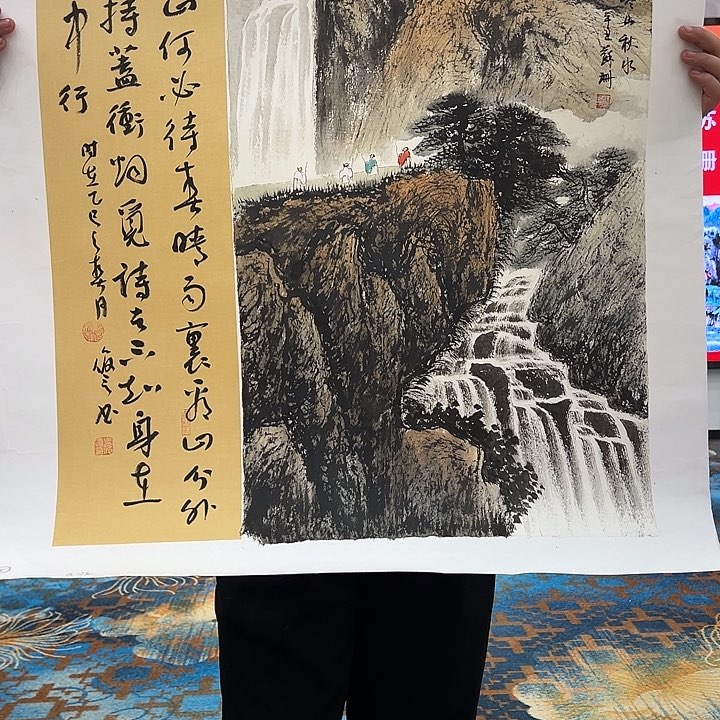 山秋水
辛丑蘇珊
山何必待春晴雨裏看山分外
持蓋衝烟覓詩去不知身在
中行
时在乙巳之春月
珊